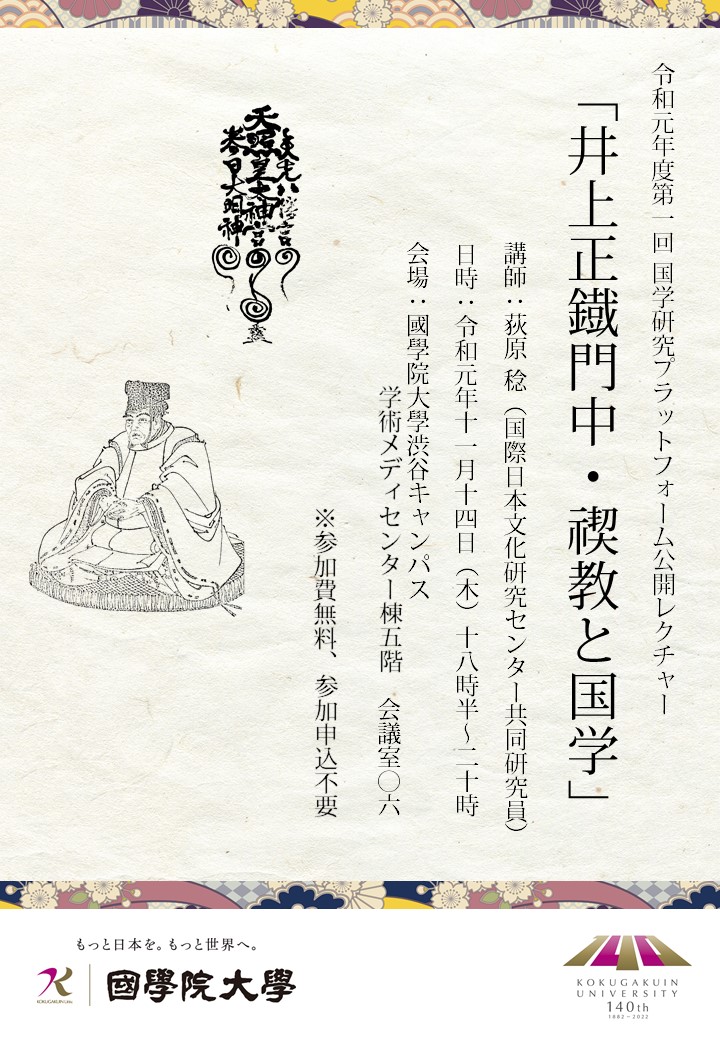 令和元年度第一回 国学研究プラットフォーム公開レクチャー
「井上正鐵門中・禊教と国学」
講師：荻原 稔（国際日本文化研究センター共同研究員）
日時：令和元年十一月十四日（木）十八時半～二十時
会場：國學院大學渋谷キャンパス
学術メディセンター棟五階 会議室〇六
※参加費無料、参加申込不要
天照皇太神宮
春日大明神
もっと日本を。もっと世界へ。
K
KOKUGAKUIN Univ.
國學院大學
140
KOKUGAKUIN
UNIVERSITY
140th
1882－2022